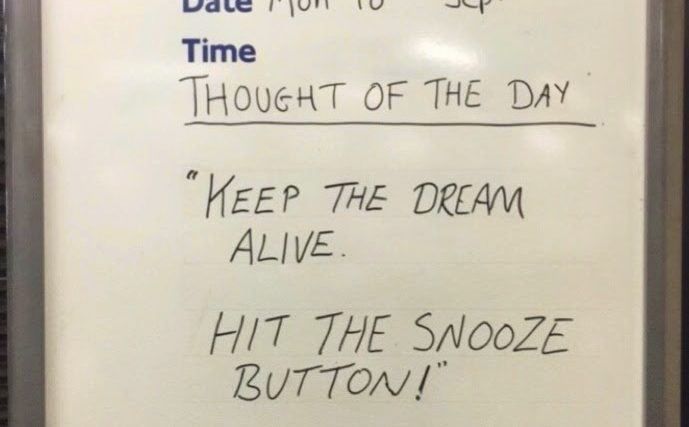 Date Mon
Time
THOUGHT OF THE DAY
"KEEP THE DREAM
ALIVE.
HIT THE SNOOZE
BUTTON!"